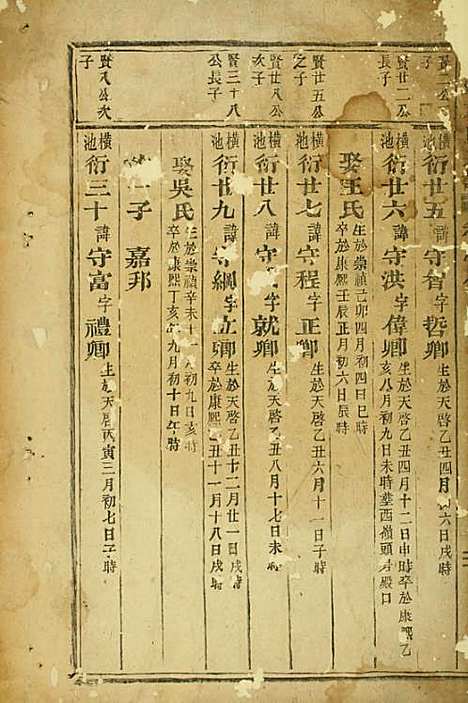 賢二公
子
橫池衍廿五諱守智字哲卿
生於天啓乙丑四月初六日戌時
賢廿二公
長子
橫池衍廿六諱守洪字偉卿
生於天啓乙丑四月十二日申時卒於康熙乙
亥八月初九日未時葬西嶺頭殿口
娶王氏
生於崇禎己卯四月初四日巳時
卒於康熙壬辰正月初六日辰時
賢廿五公
之子
橫池衍廿七諱守程字正卿
生於天啓乙丑六月十一日子時
賢廿八公
次子
橫池衍廿八諱守字就卿
生於天啓乙丑八月十七日未時
賢三十八
公長子
橫池衍廿九諱守綱字立卿
生於天啓乙丑十二月廿一日戌時
卒於康熙乙丑十一月十八日戌時
娶吳氏
生於崇禎辛未十一月初九日亥時
卒於康熙丁亥年九月初十日午時
一子 嘉邦
賢八公次
子
橫池衍三十諱守富字禮卿
生於天啓丙寅三月初七日子時